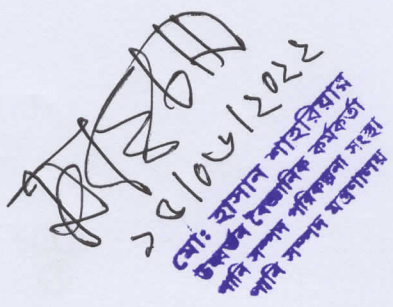 ১৪/০৬/২০২২
মো: হাসান শাহরিয়ার
ঊর্ধ্বতন বৈজ্ঞানিক কর্মকর্তা
পানি সম্পদ পরিকল্পনা সংস্থা
পানি সম্পদ মন্ত্রণালয়